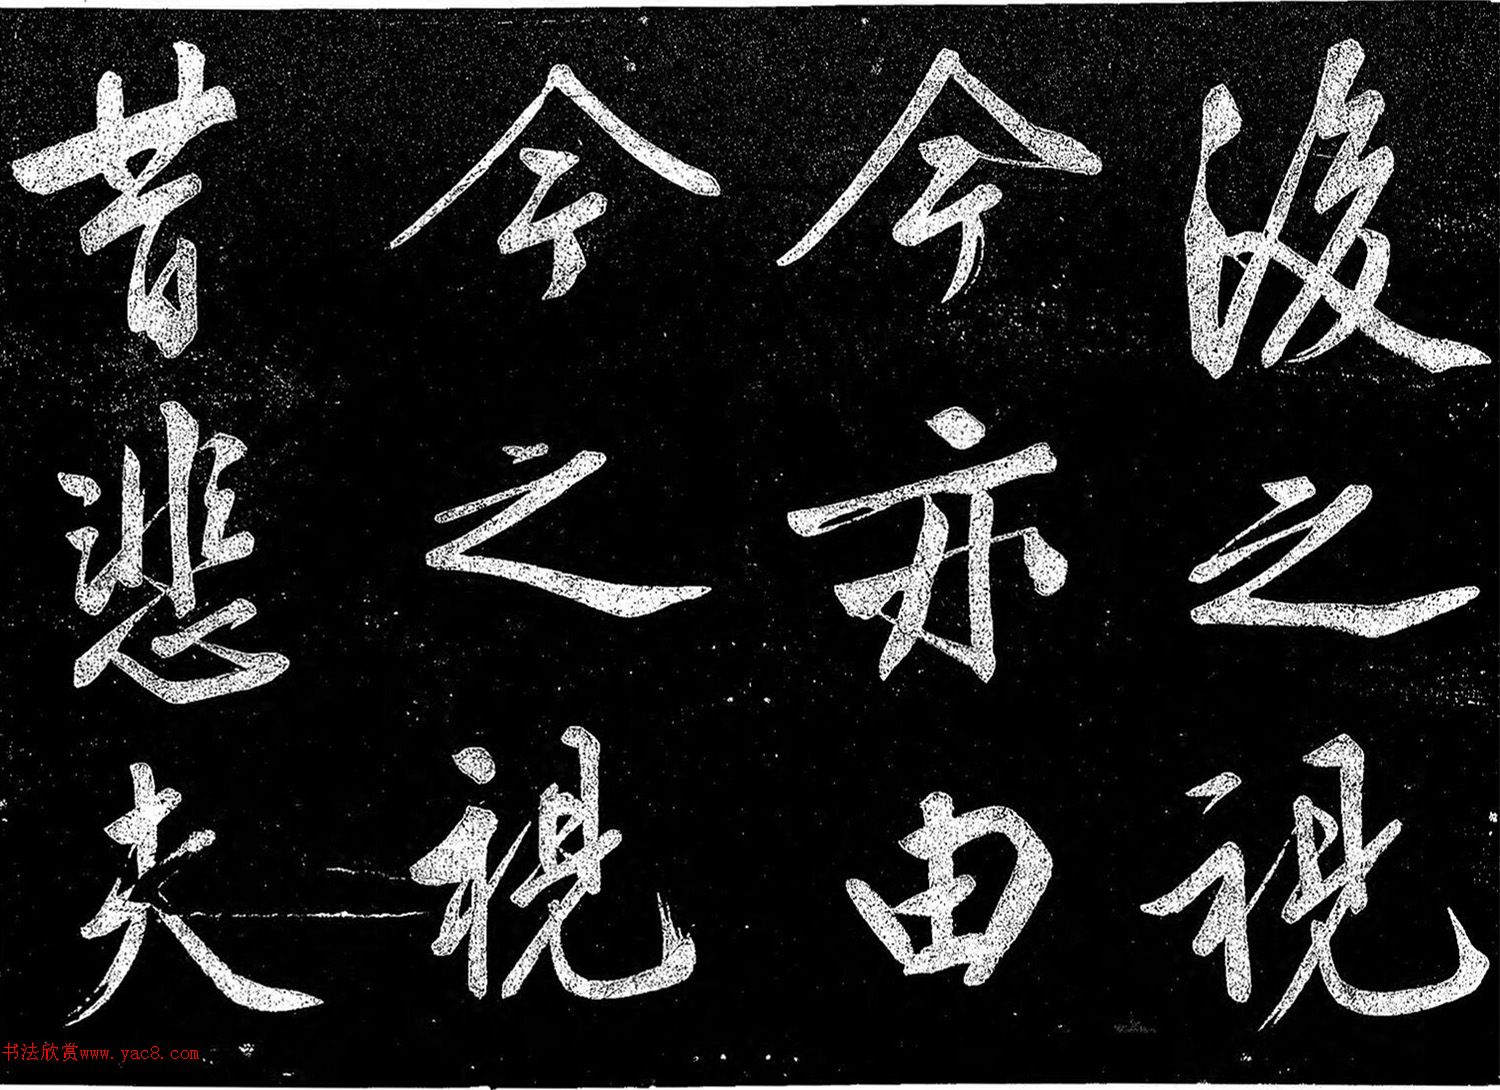 後之視
今亦由
今之視
昔悲夫
书法欣赏www.yac8.com